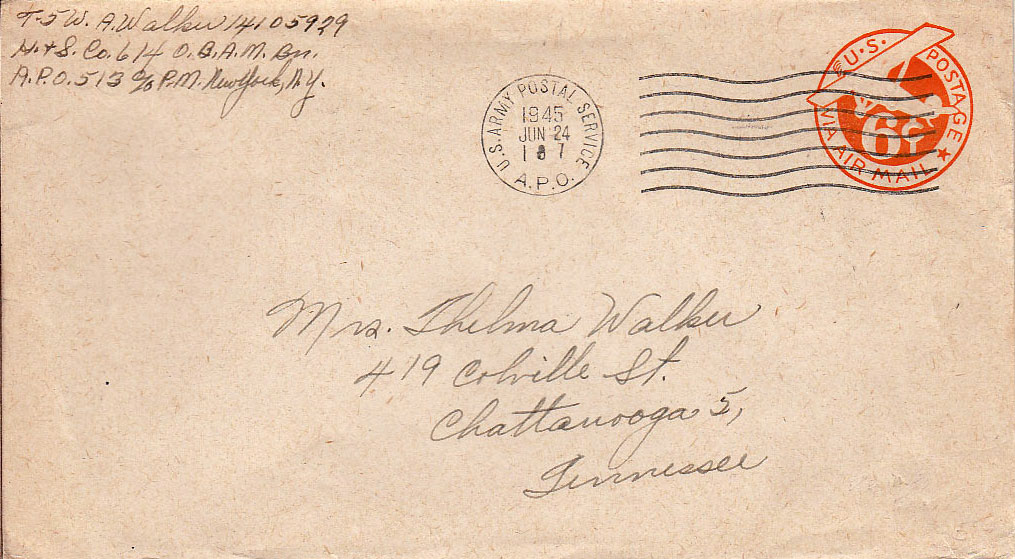 T-5 W. A. Walker 14105929
H. & S. Co. 614 O.B.A.M. Bn.
A.P.O. 513 c/o P.M. New York, N.Y.
U.S. ARMY POSTAL SERVICE
1945
JUN 24
A.P.O.
U.S. POSTAGE
6¢
VIA AIR MAIL
Mrs. Thelma Walker
419 Colville St.
Chattanooga 5,
Tennessee